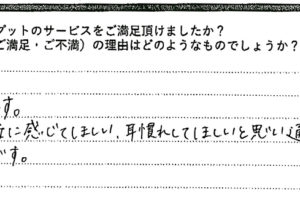 ゲットのサービスをご満足頂けましたか？
ご満足・ご不満）の理由はどのようなものでしょうか？
す。
に感じてほしい、耳慣れしてほしいと思い通
です。